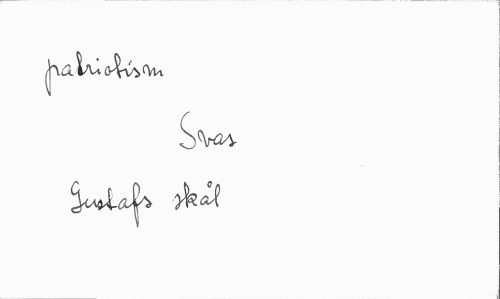 patriotism
Svas
Gustafs skål